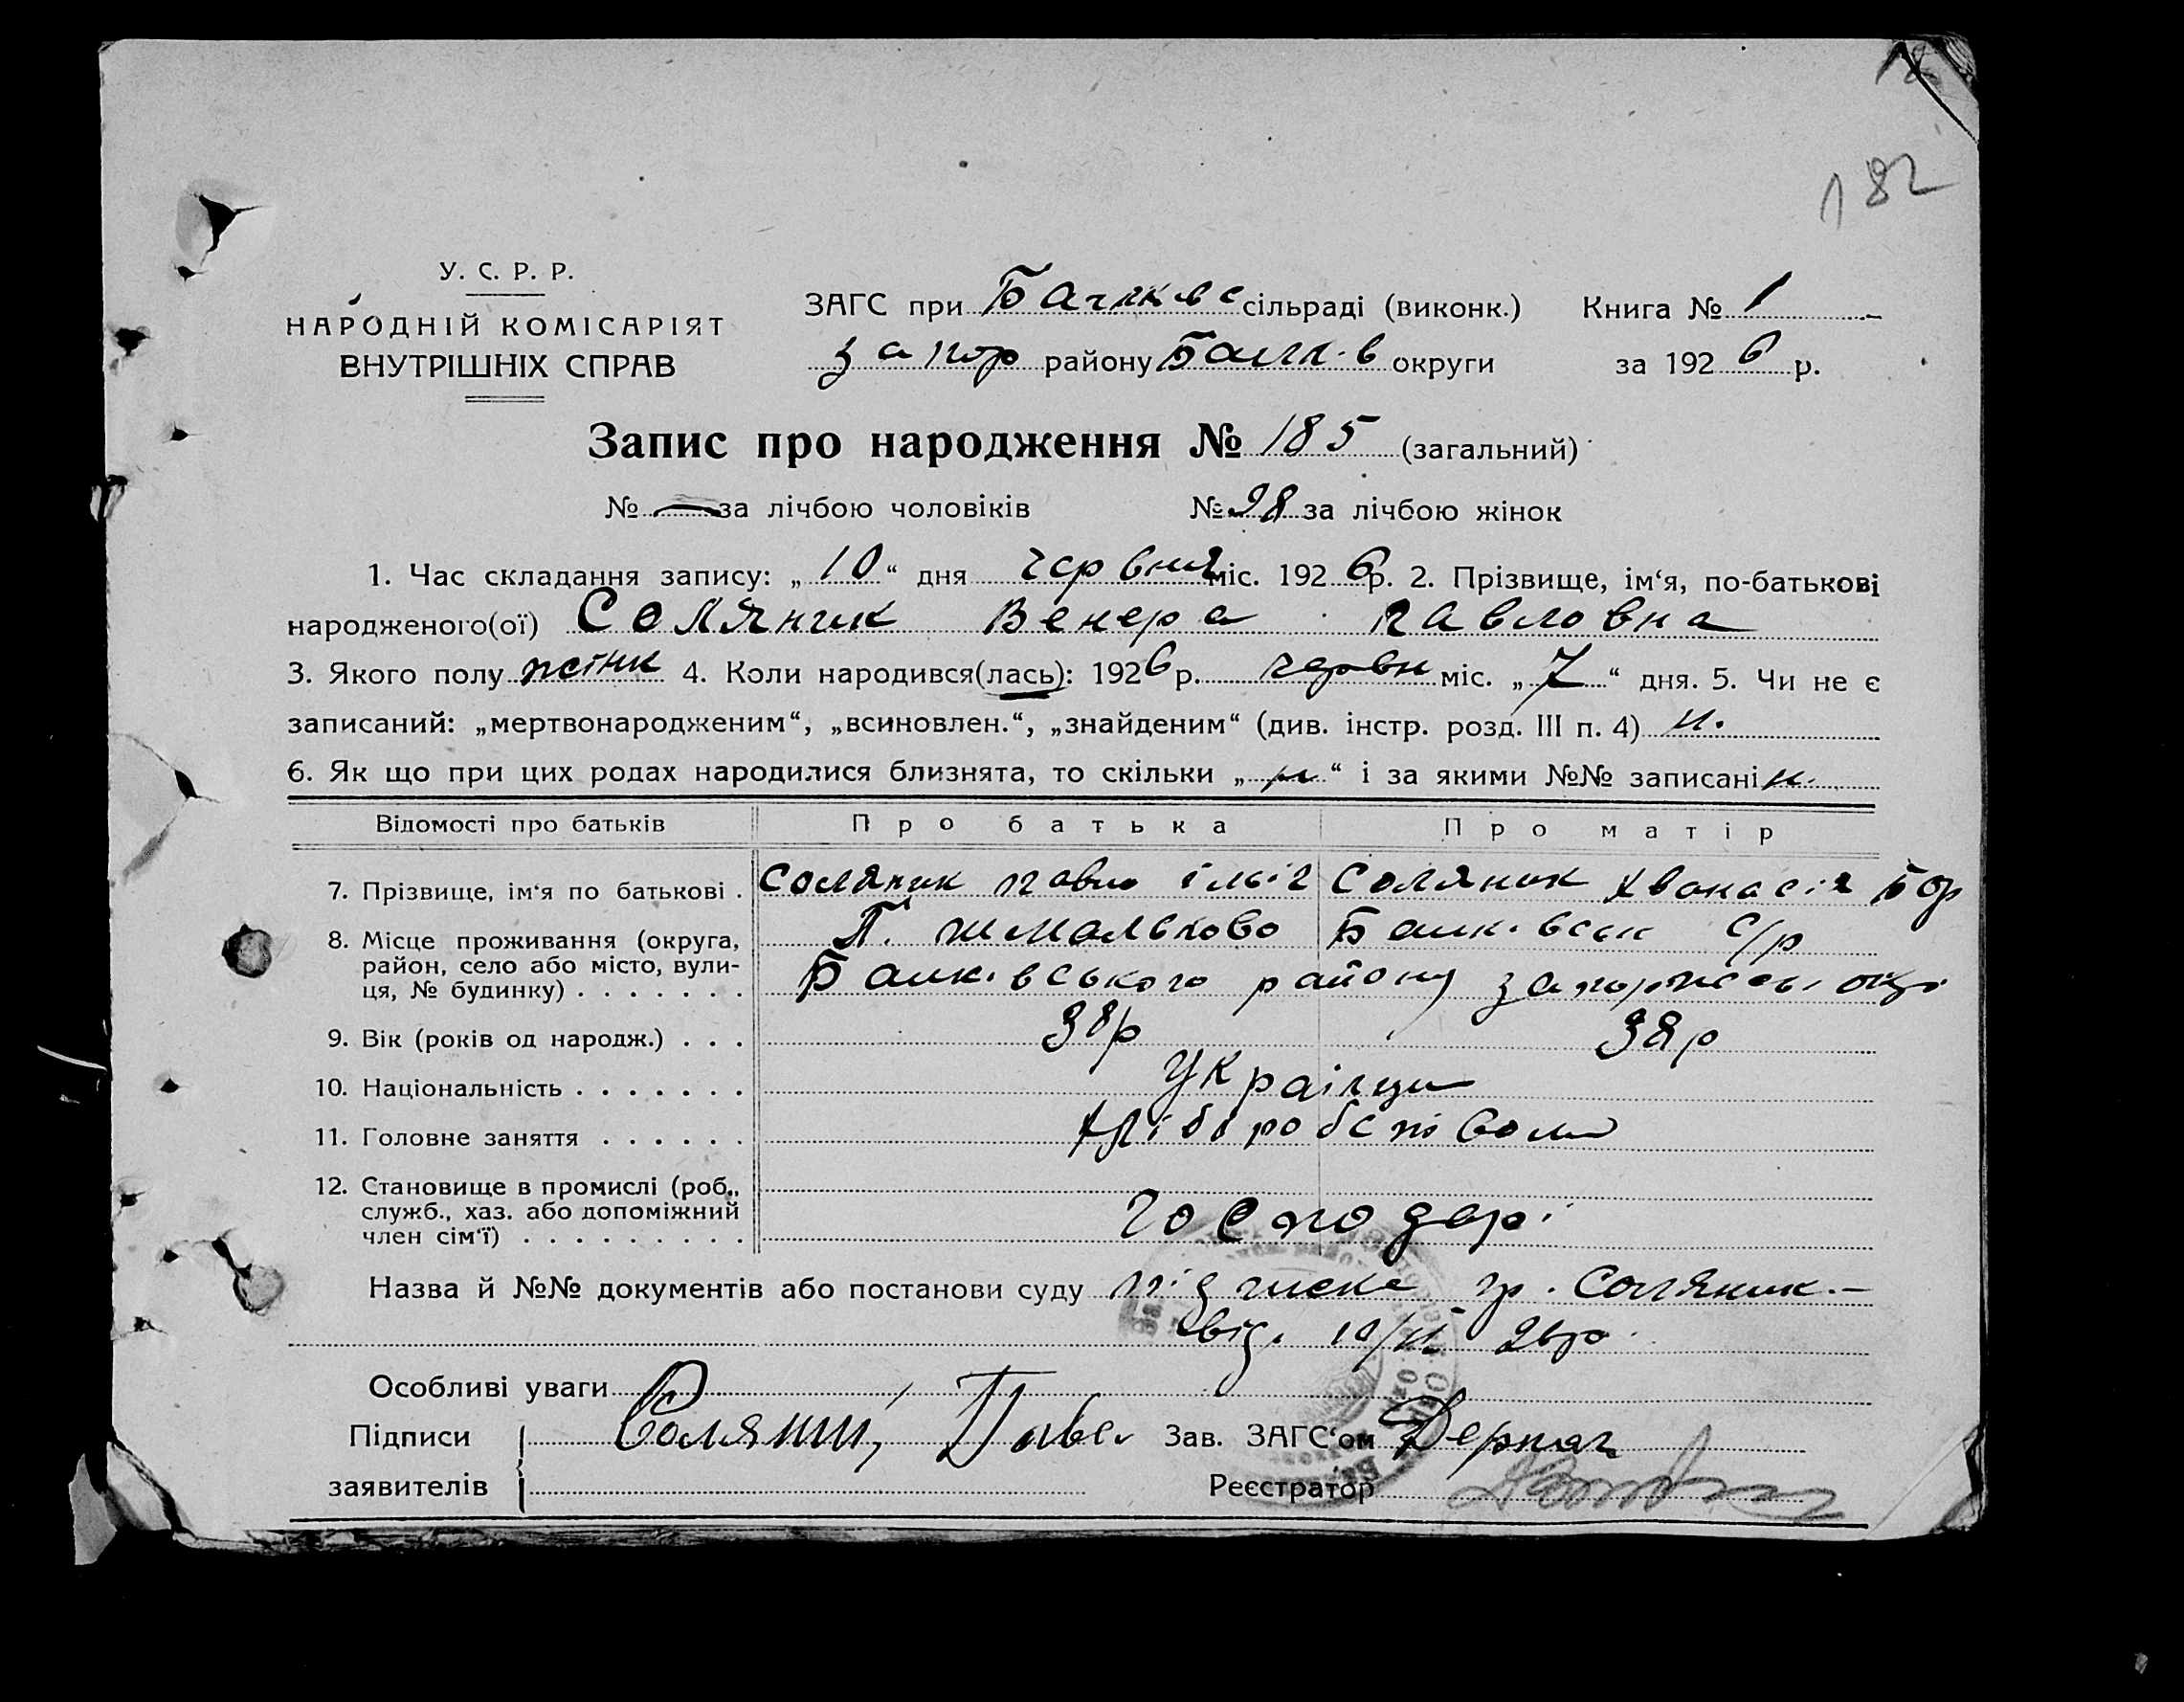 182
У. С. Р. Р.
НАРОДНІЙ КОМІСАРІЯТ
ВНУТРІШНІХ СПРАВ
ЗАГС при сільраді (виконк.) Книга № 1
Запор району Балк-в округи за 1926 р.
Запис про народження № 185 (загальний)
№ — за лічбою чоловіків № 98 за лічбою жінок
1. Час складання запису: „10“ дня червня міс. 1926 р. 2. Прізвище, ім‘я, по-батькові
народженого(ої) Солянник Венера Павловна
3. Якого полу жінк 4. Коли народився(лась): 1926 р. червн міс. „7“ дня. 5. Чи не є
записаний: „мертвонародженим“, „всиновлен.“, „знайденим“ (див. інстр. розд. III п. 4) н.
6. Як що при цих родах народилися близнята, то скільки „н“ і за якими №№ записані н.
Відомості про батьків Про батька Про матір
7. Прізвище, ім‘я по батькові . Соляник Павло Ільіч Соляник Хванасія Бор
8. Місце проживання (округа, Балківськ с/р
район, село або місто, вули- Балківського району
ця, № будинку) . . . . . . .
9. Вік (років од народж.) . . . 38р 38р
10. Національність . . . . . . . Українци
11. Головне заняття . . . . . . Хліборобством
12. Становище в промислі (роб.,
служб., хаз. або допоміжний Господарі
член сім‘ї) . . . . . . . . .
Назва й №№ документів або постанови суду підписка гр. Соляник.—
від. 10/VI 26р.
Особливі уваги
Підписи Соляник Павел Зав. ЗАГС‘ом Деркач
заявителів Реєстратор